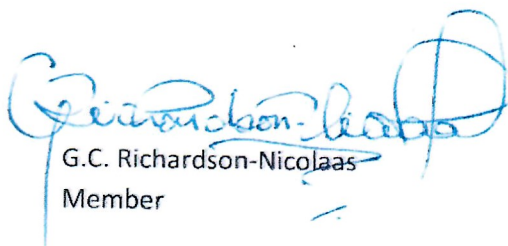 G.C. Richardson-Nicolaas
Member